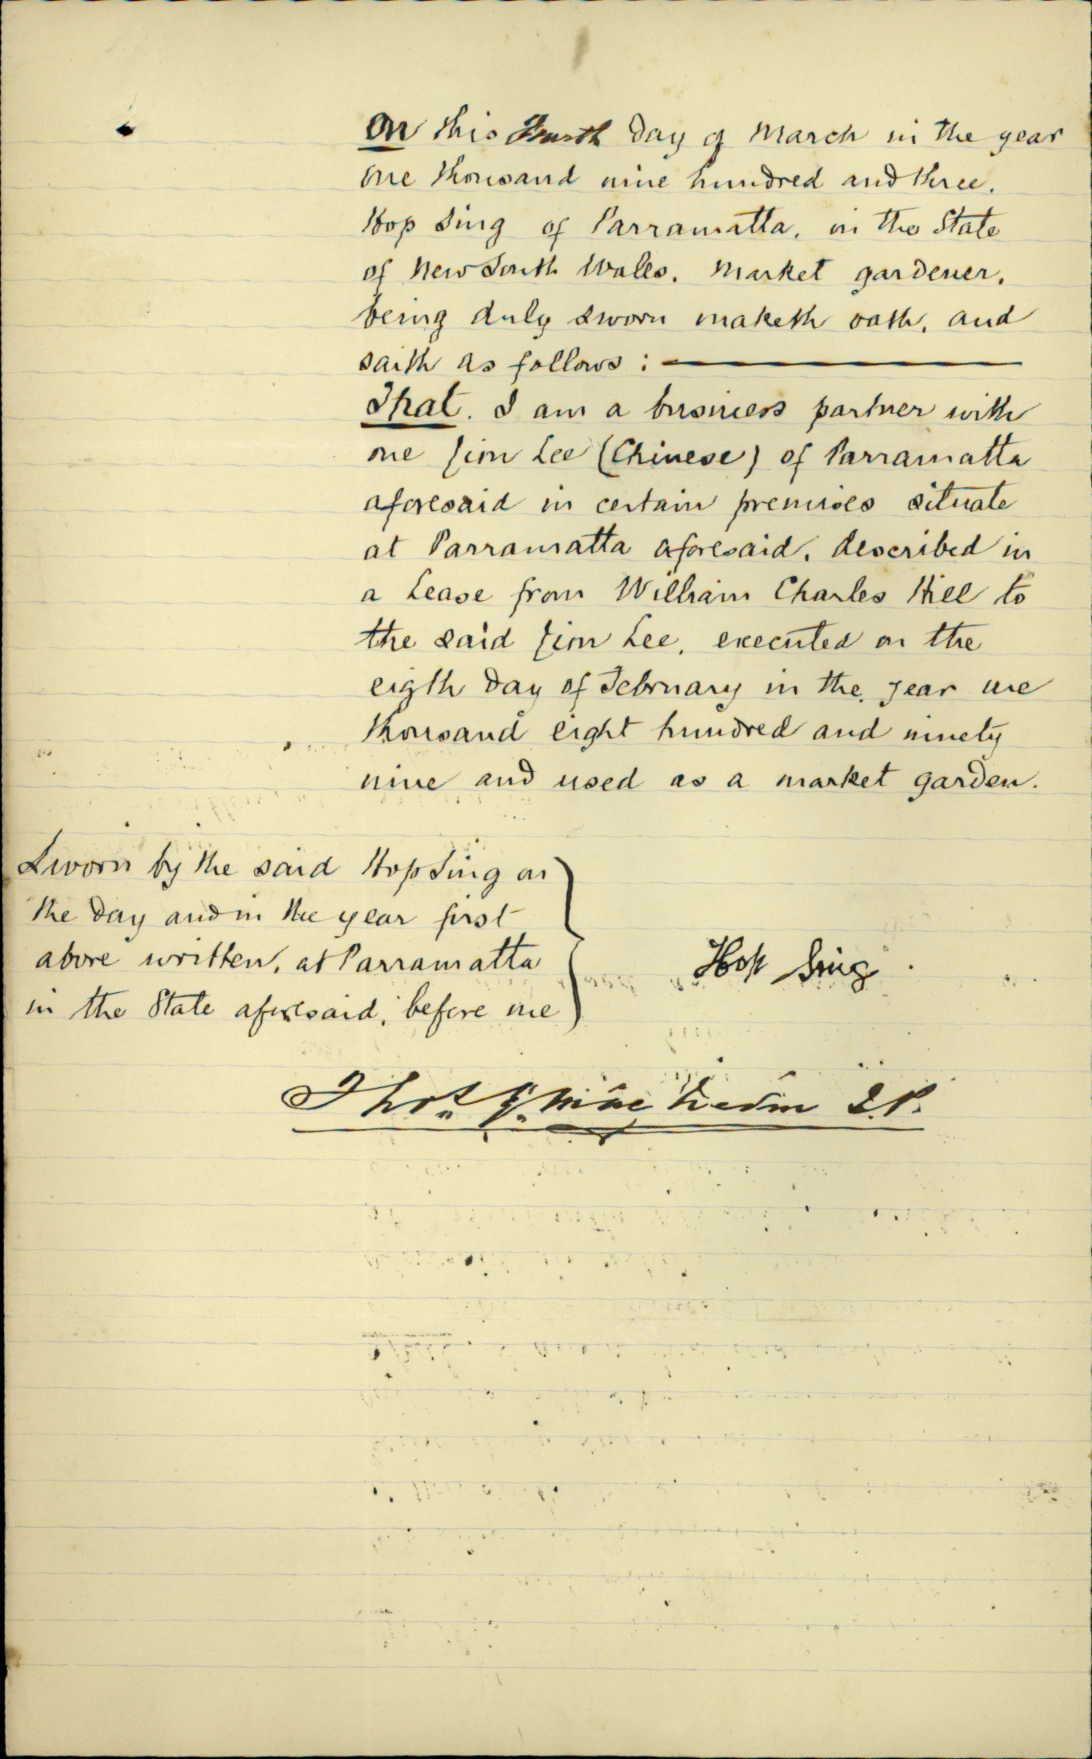 On this Fourth day of March in the year
one thousand nine hundred and three.
Hop Sing of Parramatta, in the State
of New South Wales. Market gardener,
being duly sworn maketh oath, and
saith as follows :
That. I am a business partner with
one Jim Lee (Chinese) of Parramatta
aforesaid in certain premises situate
at Parramatta aforesaid, described in
a Lease from William Charles Hill to
the said Jim Lee, executed on the
eigth day of February in the year one
thousand eight hundred and ninety
nine and used as a market garden.
Sworn by the said Hop Sing on
the day and in the year first
above written, at Parramatta
in the State aforesaid, before me
Hop Sing
Thos. J.P.